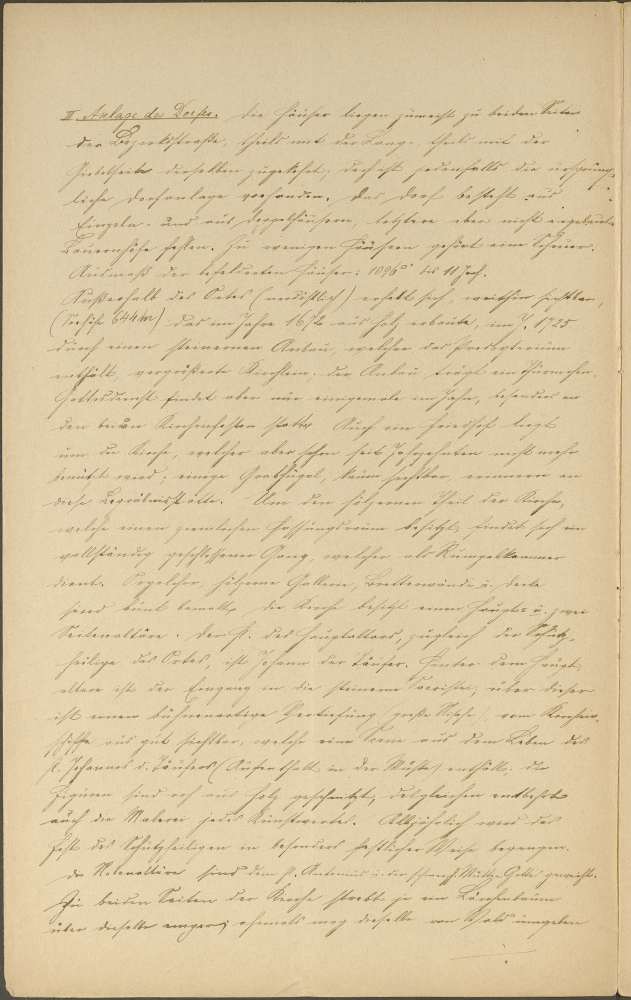 II. Anlage des Dorfes. Die Häuser liegen zumeist zu beiden Seiten
der Bezirksstraße, theils mit der Lang-, theils mit der
Giebelseite derselben zugekehrt; doch ist jedenfalls die ursprüng-
liche Dorfanlage vorhanden. Das Dorf besteht aus
Einzeln- und aus Doppelhäusern, letztere aber nicht
Bauernhöfe fehlen. Zu wenigen Häusern gehört eine Scheuer.
Ausmaß der Häuser: 1096 bis 11 Joch.
Außerhalb des Ortes (nordöstlich) erhebt sich, weithin sichtbar,
(Seehöhe 644m) das im Jahre 16 aus Holz erbaute, im J. 1725
durch einen steinernen Anbau, welcher das Presbyterium
enthält, vergrößerte Kirchlein; der Anbau trägt ein Thürmchen.
Gottesdienst findet aber nur einigemale im Jahre, besonders an
den beiden Kirchenfesten statt. Auch ein Friedhof liegt
um die Kirche, welcher aber schon seit Jahrzehnten nicht mehr
benützt wird; einige Grabhügel, kaum sichtbar, erinnern an
diese Begräbnisstätte. Um den hölzernen Theil der Kirche,
welche einen ziemlichen Fassungsraum besitzt, findet sich ein
vollständig geschlossener Gang, welcher als Rumpelkammer
dient. Orgelchor, hölzerne Gallerie, Bretterwände u. Decke
sind bunt bemalt. Die Kirche besitzt einen Haupt- u. zwei
Seitenaltäre. Der H. des Hauptaltars, zugleich der Schutz-
heilige des Ortes, ist Johann der Täufer. Hinter dem Haupt-
altare ist der Eingang in die steinerne Sacristei; über dieser
ist eine bühnenartige Vertiefung (große Nische), vom Kirchen-
schiffe aus gut sichtbar, welche eine Scene aus dem Leben des
h. Johannes d. Täufers (Aufenthalt in der Wüste) enthält; die
Figuren sind roh aus Holz geschnitzt, desgleichen entbehrt
auch die Malerei jedes Kunstwertes. Alljährlich wird das
Fest des Schutzheiligen in besonders festlicher Weise begangen.
Die Nebenaltäre sind dem h. Antonius u. der schmerzh. Mutter Gottes geweiht.
Zu beiden Seiten der Kirche strebt je ein Lärchenbaum
über dieselbe empor; ehemals mag dieselbe von Wald umgeben